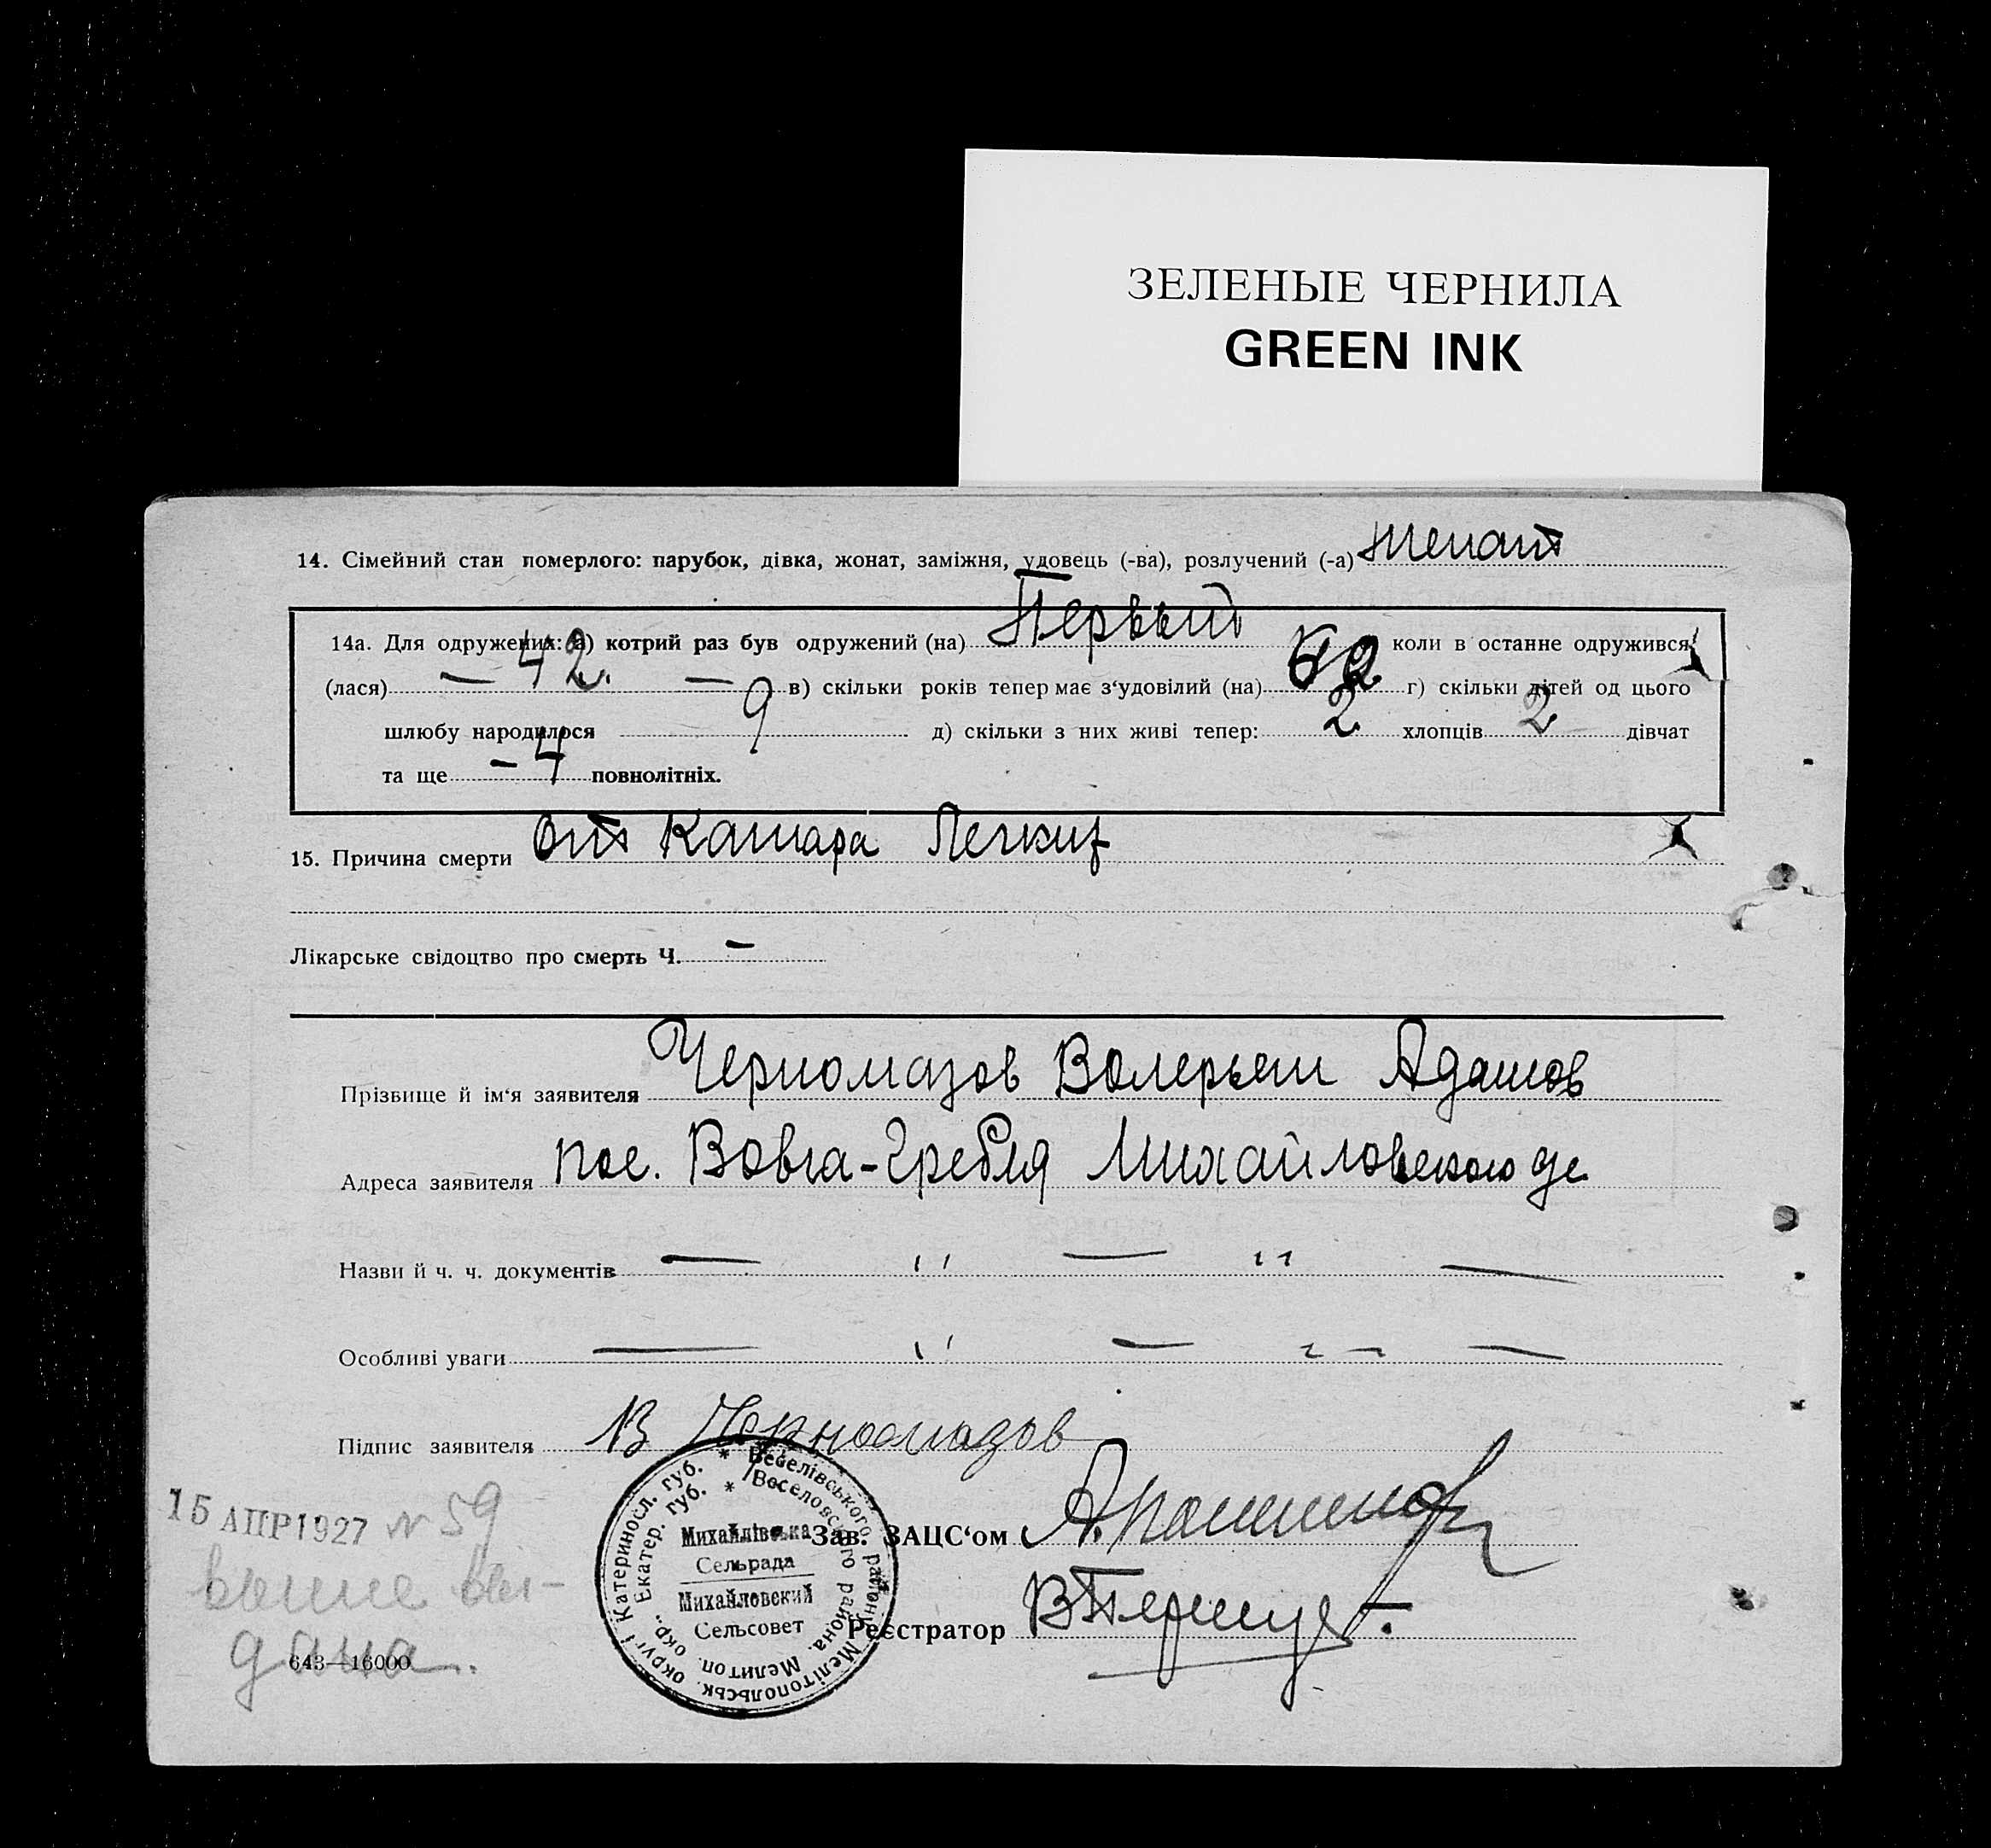 ЗЕЛЕНЫЕ ЧЕРНИЛА
GREEN INK
14. Сімейний стан померлого: парубок, дівка, жонат, заміжня, удовець (-ва), розлучений (-а) Женат
14а. Для одружених: а) котрий раз був одружений (на) Первый коли в останне одружився
(лася) — 42. — в) скільки років тепер має з‘удовілий (на) г) скільки дітей од цього
шлюбу народилося 9 д) скільки з них живі тепер: 2 хлопців 2 дівчат
та ще – 4 повнолітніх.
15. Причина смерти От Катара Легких
Лікарське свідоцтво про смерть Ч. –
Прізвище й ім‘я заявителя Черномазов Валерьян Адамов
Адреса заявителя пос. Вовча-Гребля Михайловского
Назви й ч. ч. документів — " — " —
Особливі уваги — " — " —
Підпис заявителя В Черномазов
15 АПР 1927 № 59
выдана.
Катериносл. губ. * Веселівського району Мелітопольськ. округи
Екатер. губ. * Веселовского района. Мелитоп. окр.
Михайлівська
Сельрада
Михайловский
Сельсовет
Зав. ЗАЦС‘ом
Реєстратор
643—16000